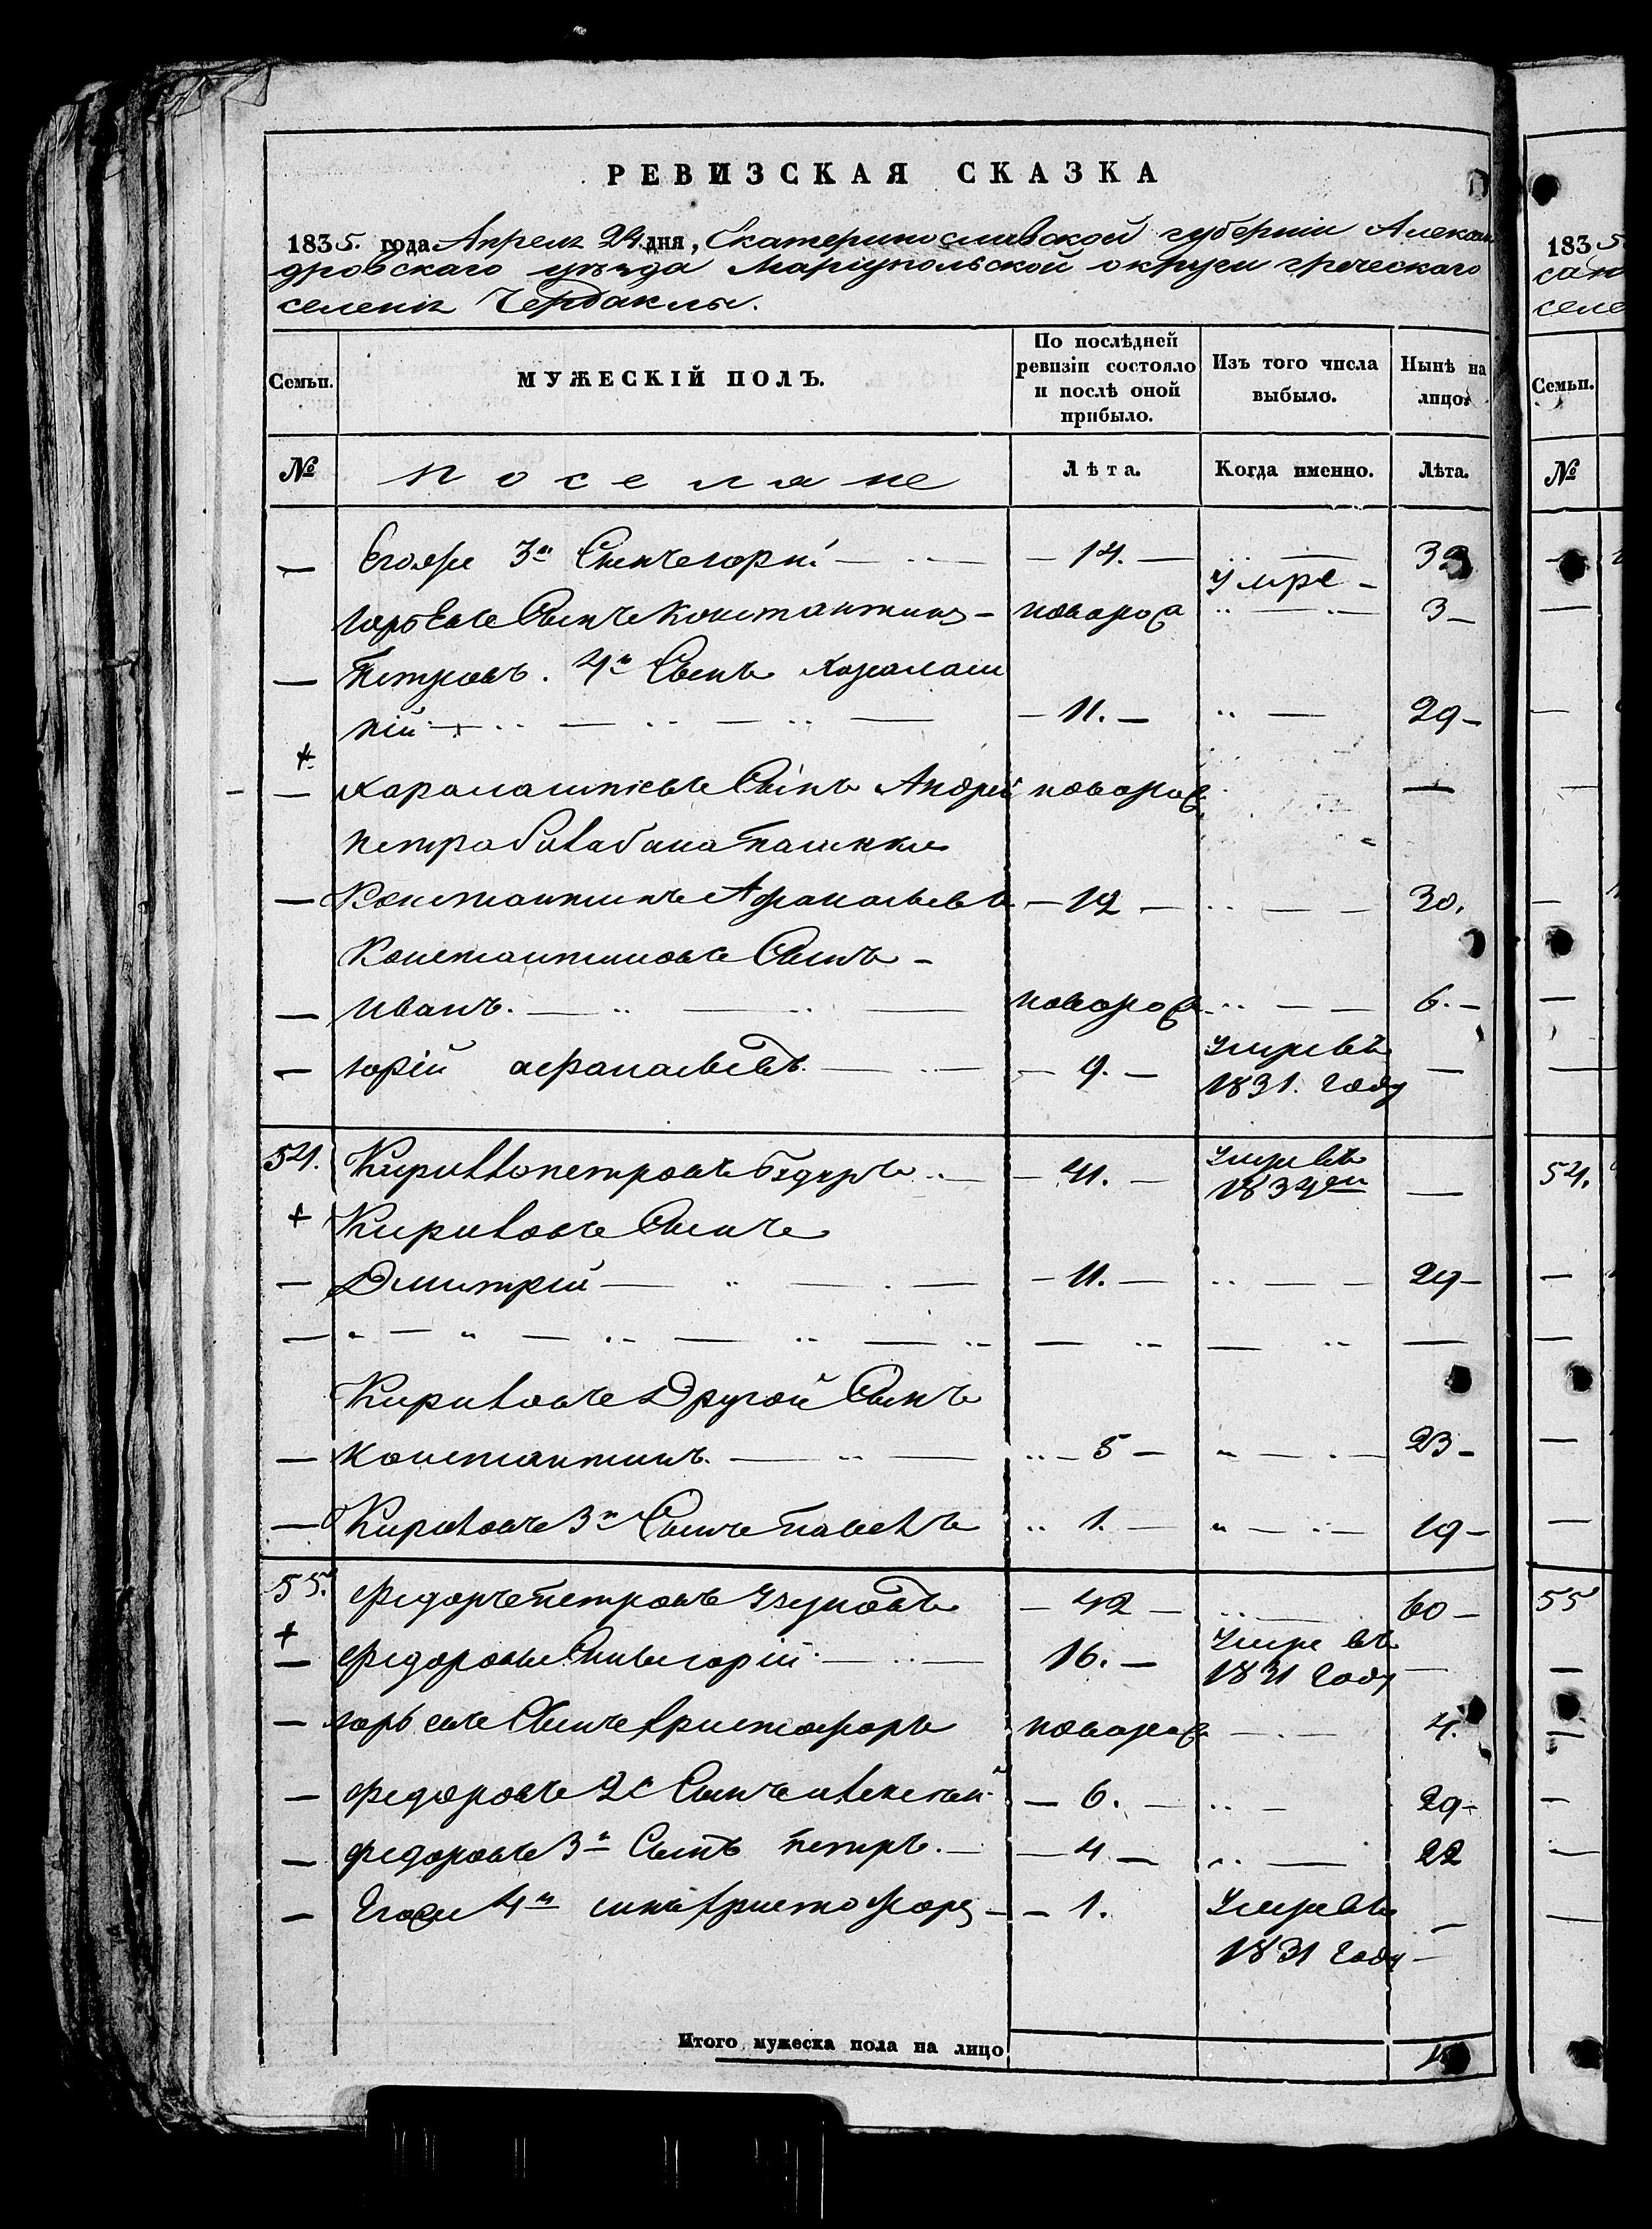 РЕВИЗСКАЯ СКАЗКА
1835. года Апреля 24 дня, Екатеринославской губерніи Алексан
дровскаго уѣзда Маріупольской округи греческаго
селенія Чердаклы.
Семьи. МУЖЕСКІЙ ПОЛЪ. По послѣдней ревизіи состояло и послѣ оной прибыло. Изъ того числа выбыло. Нынѣ на лицо.
№ поселяне Лѣта. Когда именно. Лѣта.
— 3й Сынъ — 14. — 32
Сынъ Константинъ — новорож умре — 3 —
— Петровъ. 4й Сынъ Харалам
пій — 11. — 29 —
— Харалампіевъ Сынъ Андрей новорож —
Петра
— Константинъ Афанасьевъ — 12 — 30.
Константиновъ Сынъ —
— Иванъ. новорож 6. —
— юрій афанасьевъ — 9. — умре въ 1831. году —
54. Кирилло петровъ — 41. — умре въ 1834 —
+ Кириловъ Сынъ
— Дмитрій — 11. — 29 —
Кириловъ Другой Сынъ
— константинъ. 5 — 23 —
— Кириловъ 3й Сынъ павелъ 1. — 19 —
55. Федоръ петровъ — 42 — 60 —
+
— Федоровъ 16. — умре въ 1831 году —
— Сынъ христофоръ новорож 4.
— Федоровъ 2й Сынъ — 6. — 29 —
— федоровъ 3й Сынъ петръ. — 4 — 22
— 4й христофоръ — 1. умре въ —
1831 году —
Итого мужеска пола на лицо
1835
Семьи.
№
54.
55